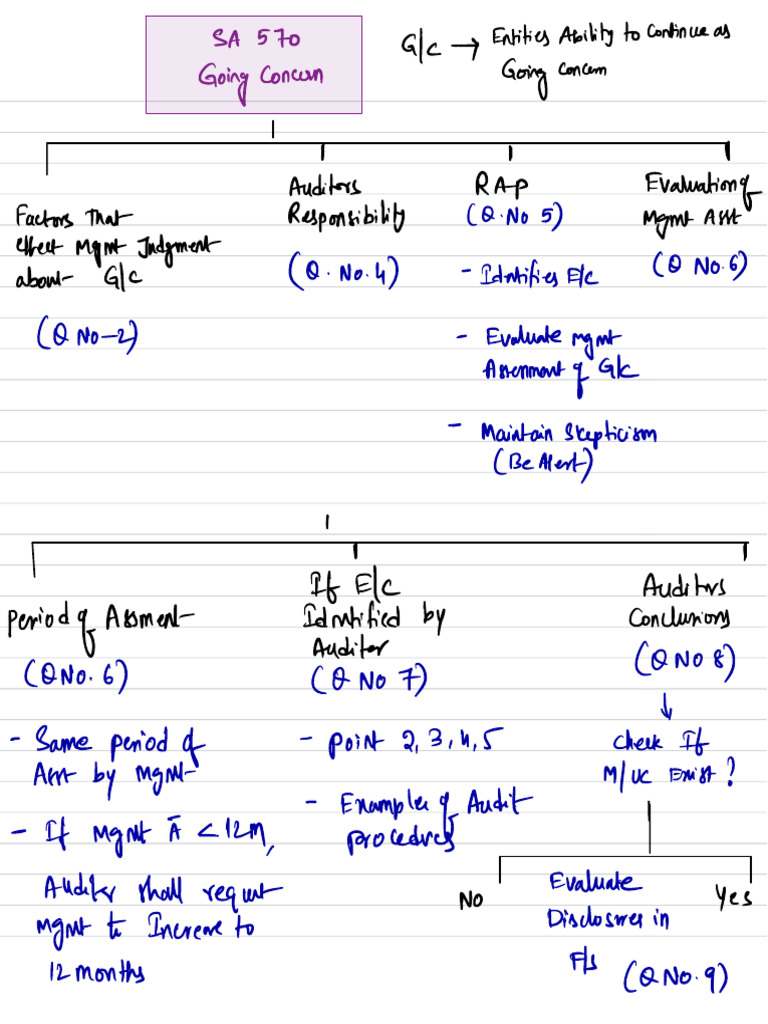 SA 570
Going Concern
G/C → Entities Ability to Continue as
Going Concern
Factors That
effect Mgmt Judgment
about G/C
(Q No-2)
Auditors
Responsibility
(Q. No. 4)
RAP
(Q. No 5)
- Identifies E/C
- Evaluate mgmt
Assessment of G/C
- Maintain Skepticism
(Be Alert)
Evaluation of
Mgmt Asst
(Q No. 6)
Period of Assment
(Q No. 6)
- Same period of
Asst by Mgmt
- If Mgmt Ā < 12M,
Auditor shall request
Mgmt to Increase to
12 months
If E/C
Identified by
Auditor
(Q No 7)
- Point 2, 3, 4, 5
- Examples of Audit
procedures
Auditors
Conclusions
(Q No 8)
↓
Check If
M/UC Exist?
No
Evaluate
Disclosures in
F/s
(Q No. 9)
Yes